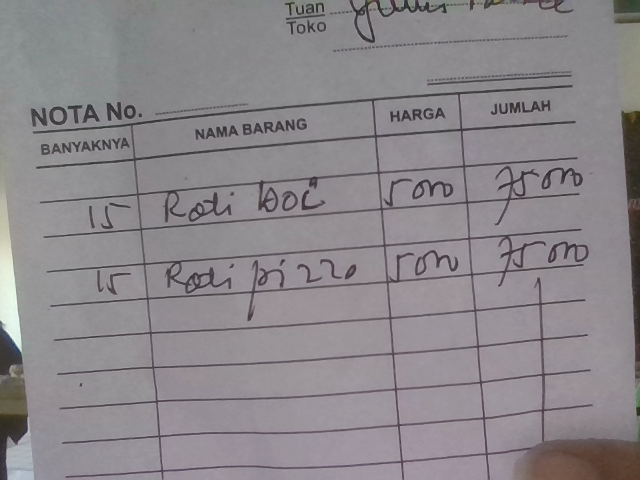 Tuan
Toko
NOTA No.
BANYAKNYA NAMA BARANG HARGA JUMLAH
15 Roti 5000 75000
15 Roti pizza 5000 75000